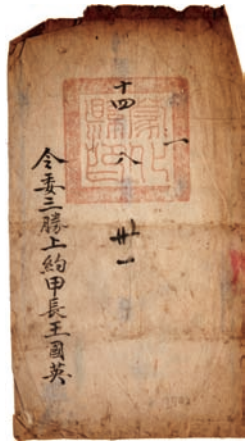 一
十四 八 卅一
令委三勝上約甲長王國英